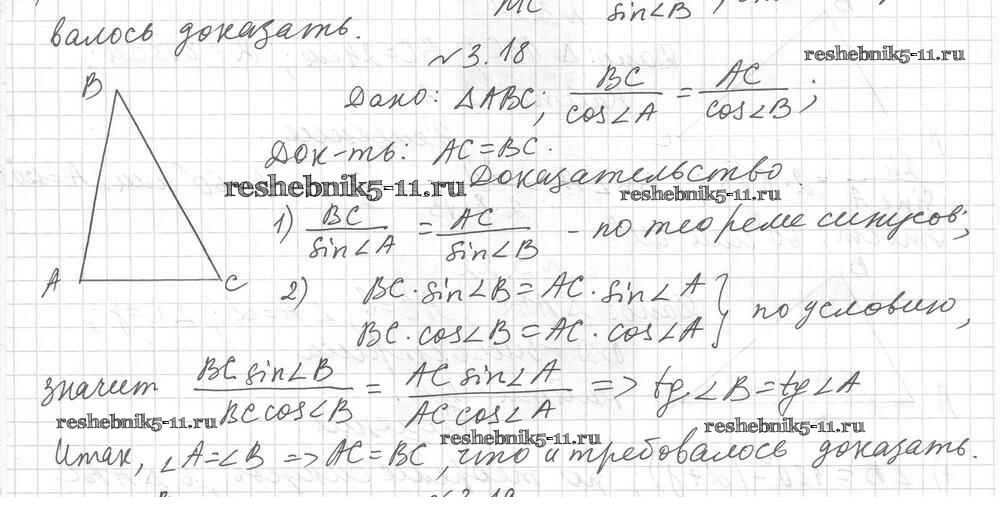 MC sin∠B
валось доказать.
№3.18
reshebnik5-11.ru
B
Дано: △ABC; BC/cos∠A = AC/cos∠B;
Док-ть: AC=BC.
reshebnik5-11.ru Доказательство.
reshebnik5-11.ru
1) BC/sin∠A = AC/sin∠B - по теореме синусов;
A C
2) BC·sin∠B = AC·sin∠A
BC·cos∠B = AC·cos∠A } по условию,
значит BC sin∠B / BC cos∠B = AC sin∠A / AC cos∠A => tg∠B = tg∠A
reshebnik5-11.ru reshebnik5-11.ru reshebnik5-11.ru
Итак, ∠A=∠B => AC=BC, что и требовалось доказать.
№3.19